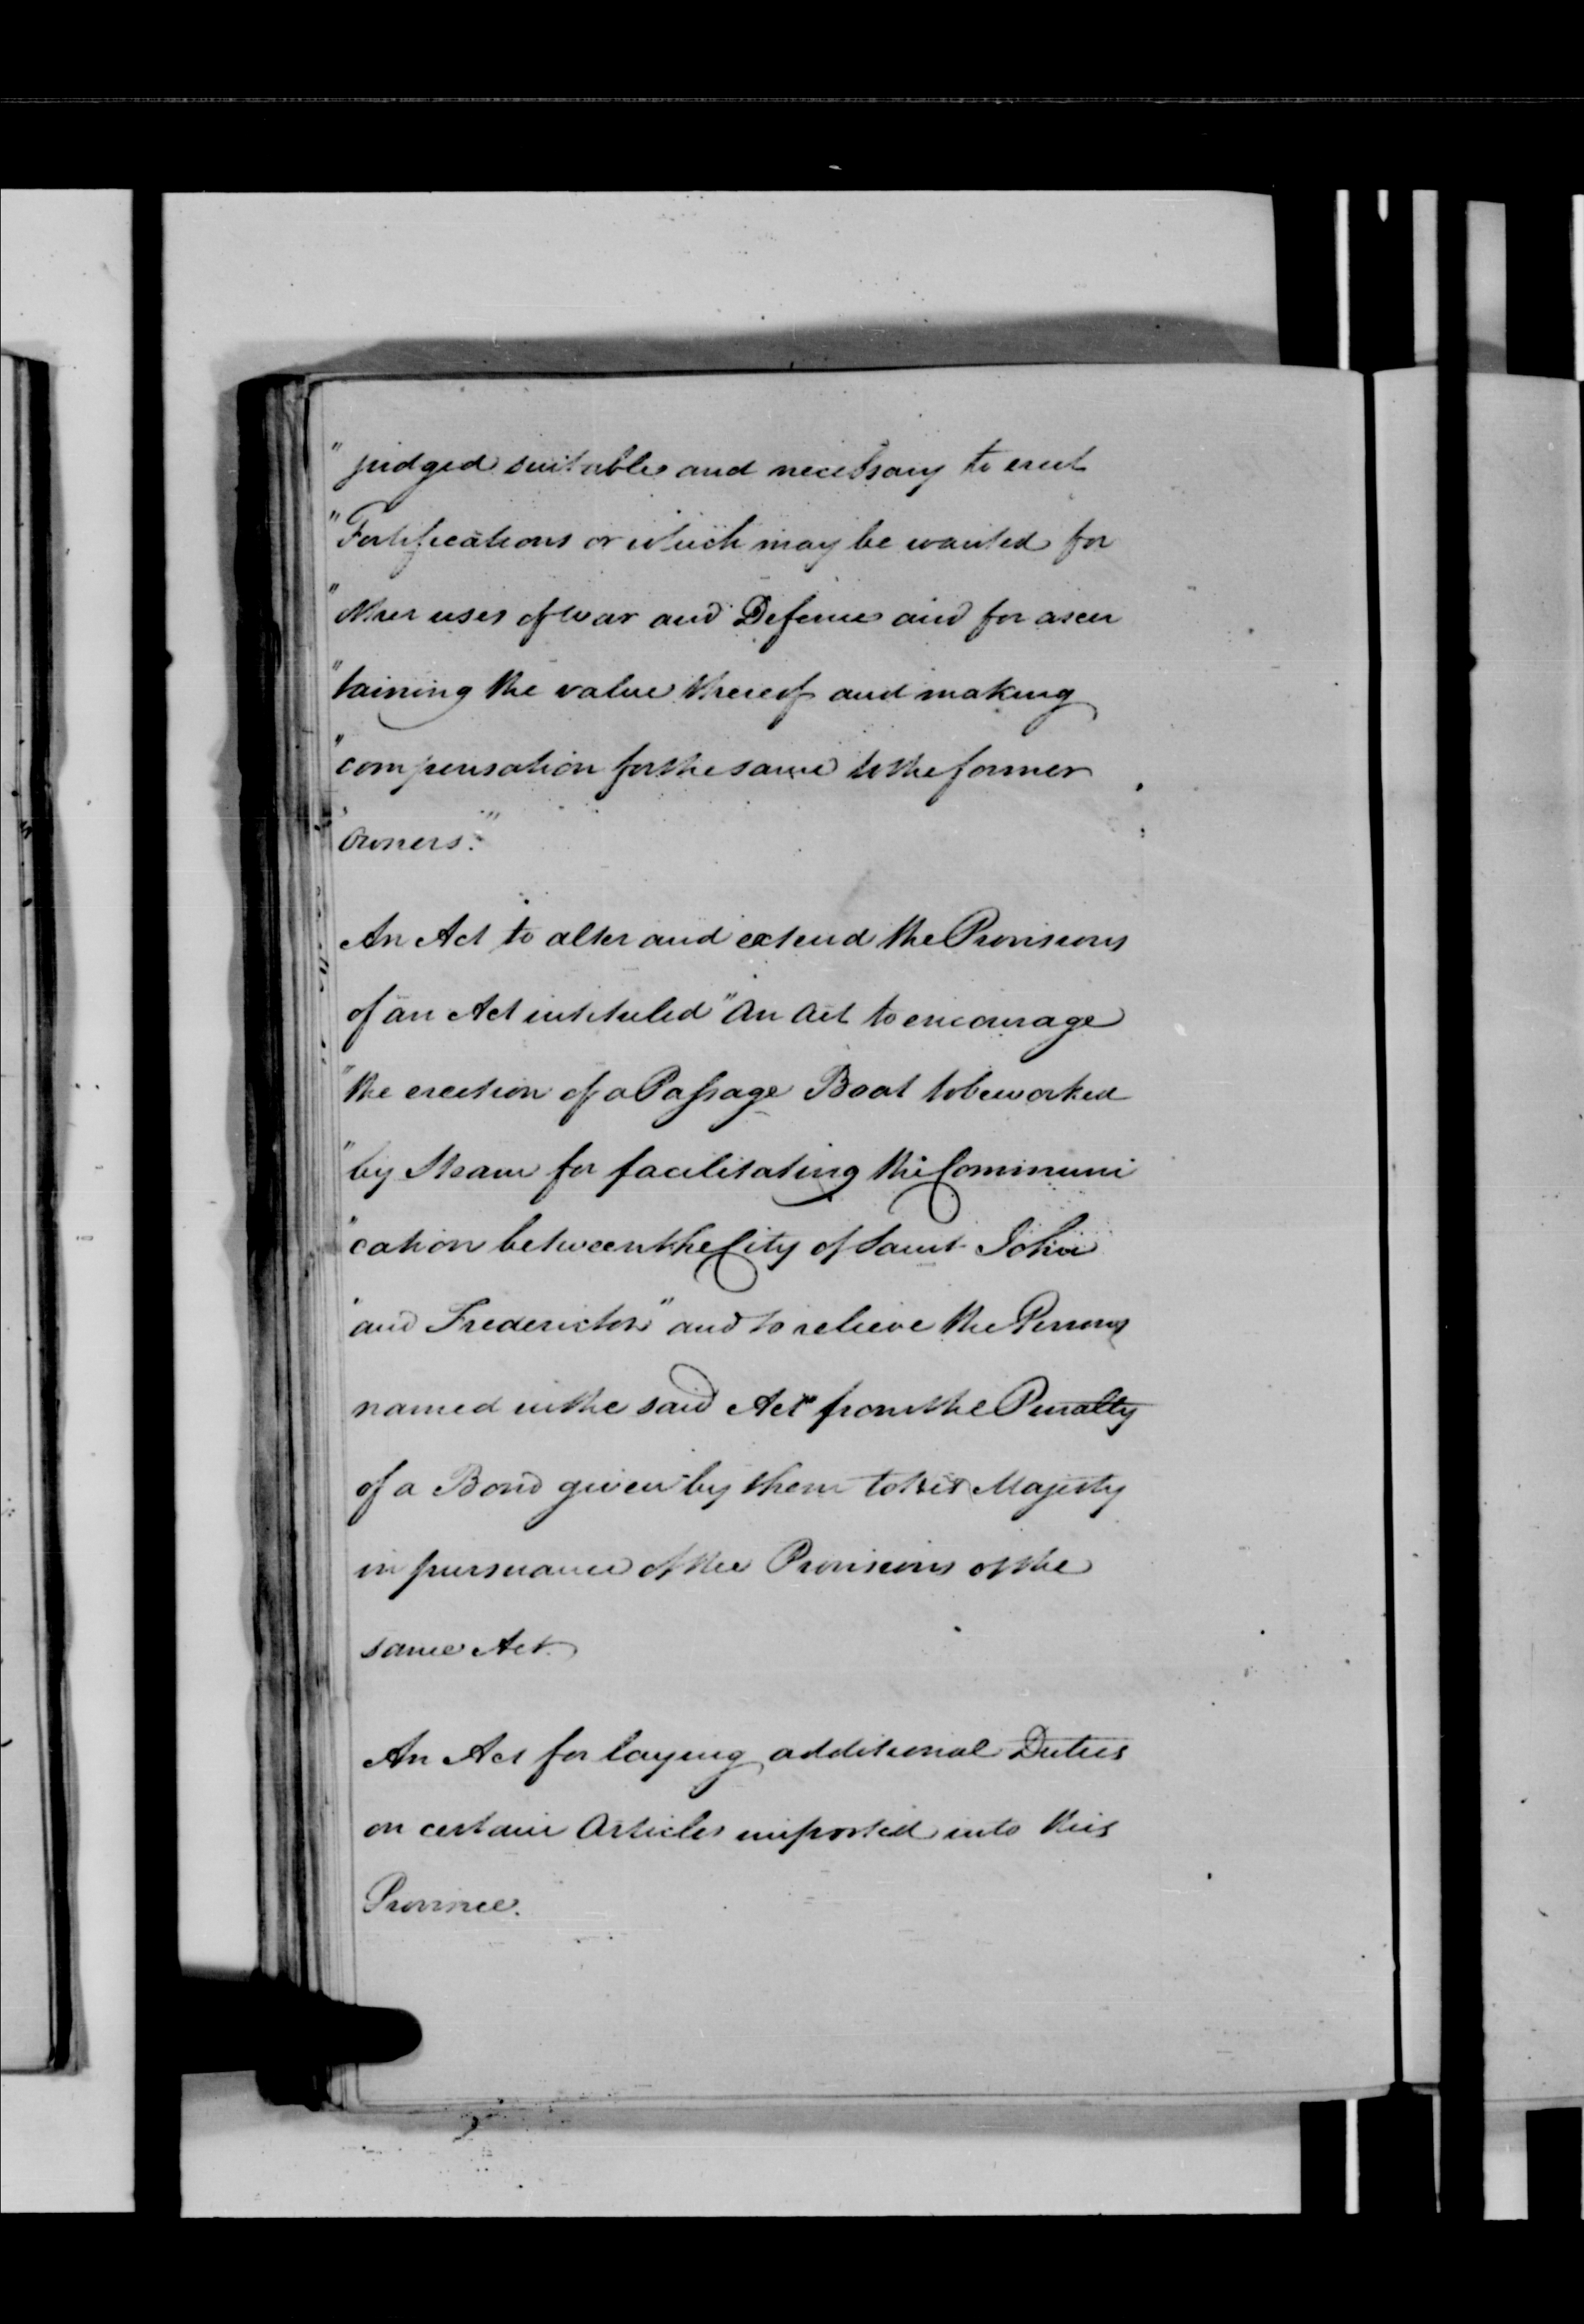 " judged suitable and necessary to erect
" Fortifications or which may be wanted for
" other uses of war and Defence and for ascer
" taining the value thereof and making
" compensation for the same to the former
" Owners."
An Act to alter and extend the Provisions
of an Act intituled "An Act to encourage
" the erection of a Passage Boat to be worked
" by Steam for facilitating the Communi
" cation between the City of Saint John
" and Fredericton" and to relieve the Persons
named in the said Act from the Penalty
of a Bond given by them to his Majesty
in pursuance of the Provisions of the
same Act.
An Act for laying additional Duties
on certain Articles imported into this
Province.